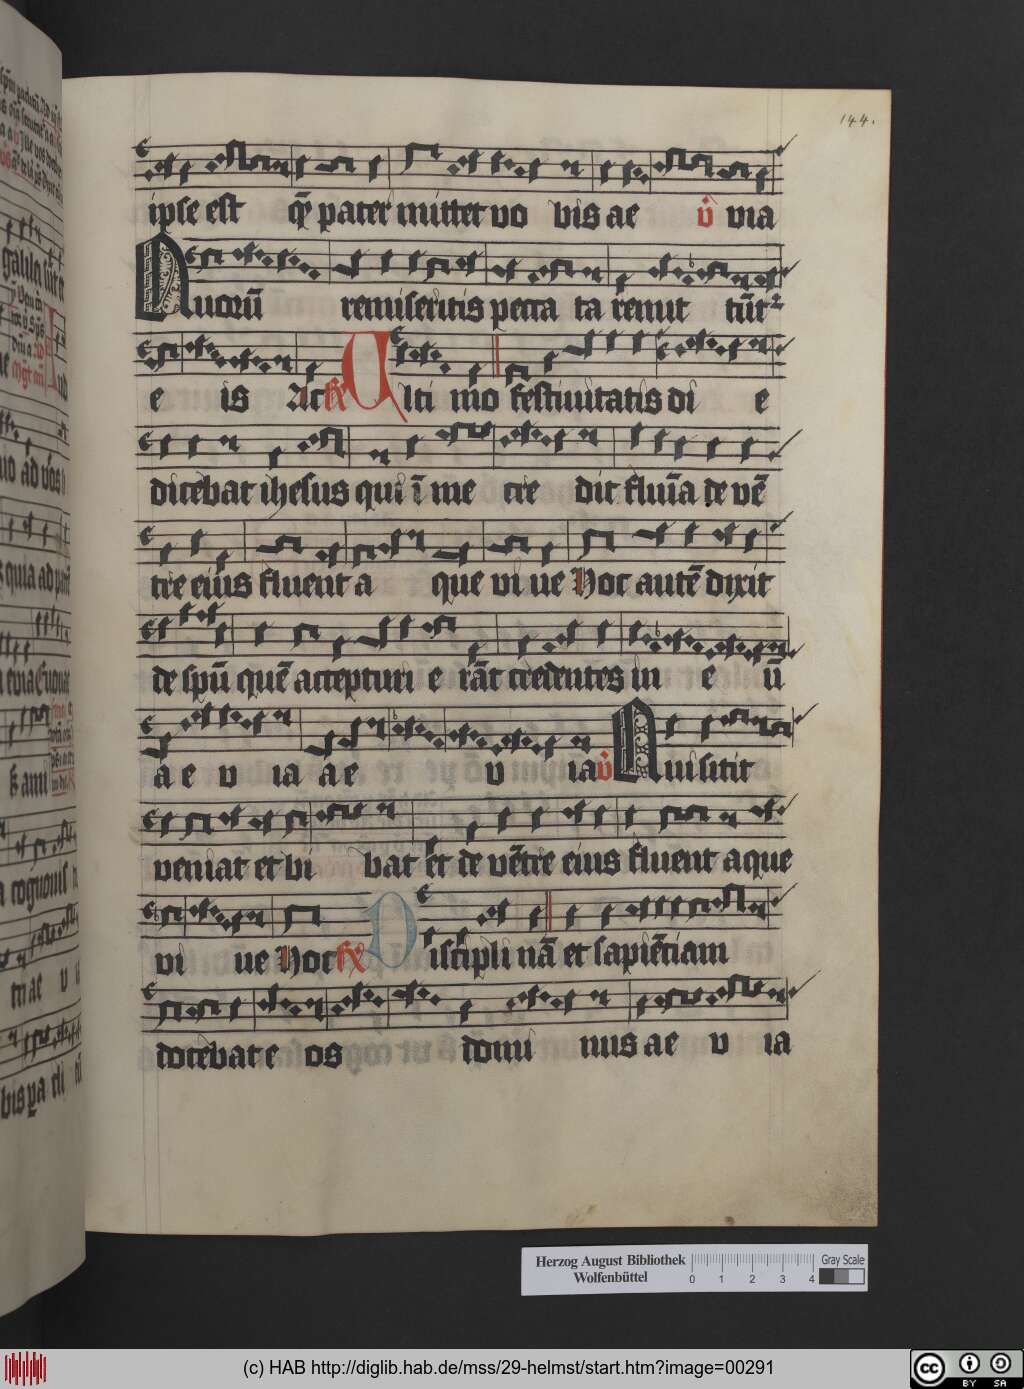 144.
ipse est q̄ pater mittet vo bis ae v̊ via
Quorū remiseritis pecca ta remit tūt᷑
e is Ac rx Alti mo festiuitatis di e
dicebat ihesus qui ī me cre dit flūīa de vē
tre eius fluent a que vi ue Hoc autē dixit
de spū quē accepturi e rāt credentes in e ū
a e v ia a e v ia v̊ Qui sitit
veniat et bi bat et de vētre eius fluent aque
vi ue Hoc rx Discipli nā et sapiētiam
docebat e os domi nus ae v ia
Herzog August Bibliothek
Wolfenbüttel
0 1 2 3 4
Gray Scale
(c) HAB http://diglib.hab.de/mss/29-helmst/start.htm?image=00291
cc BY SA